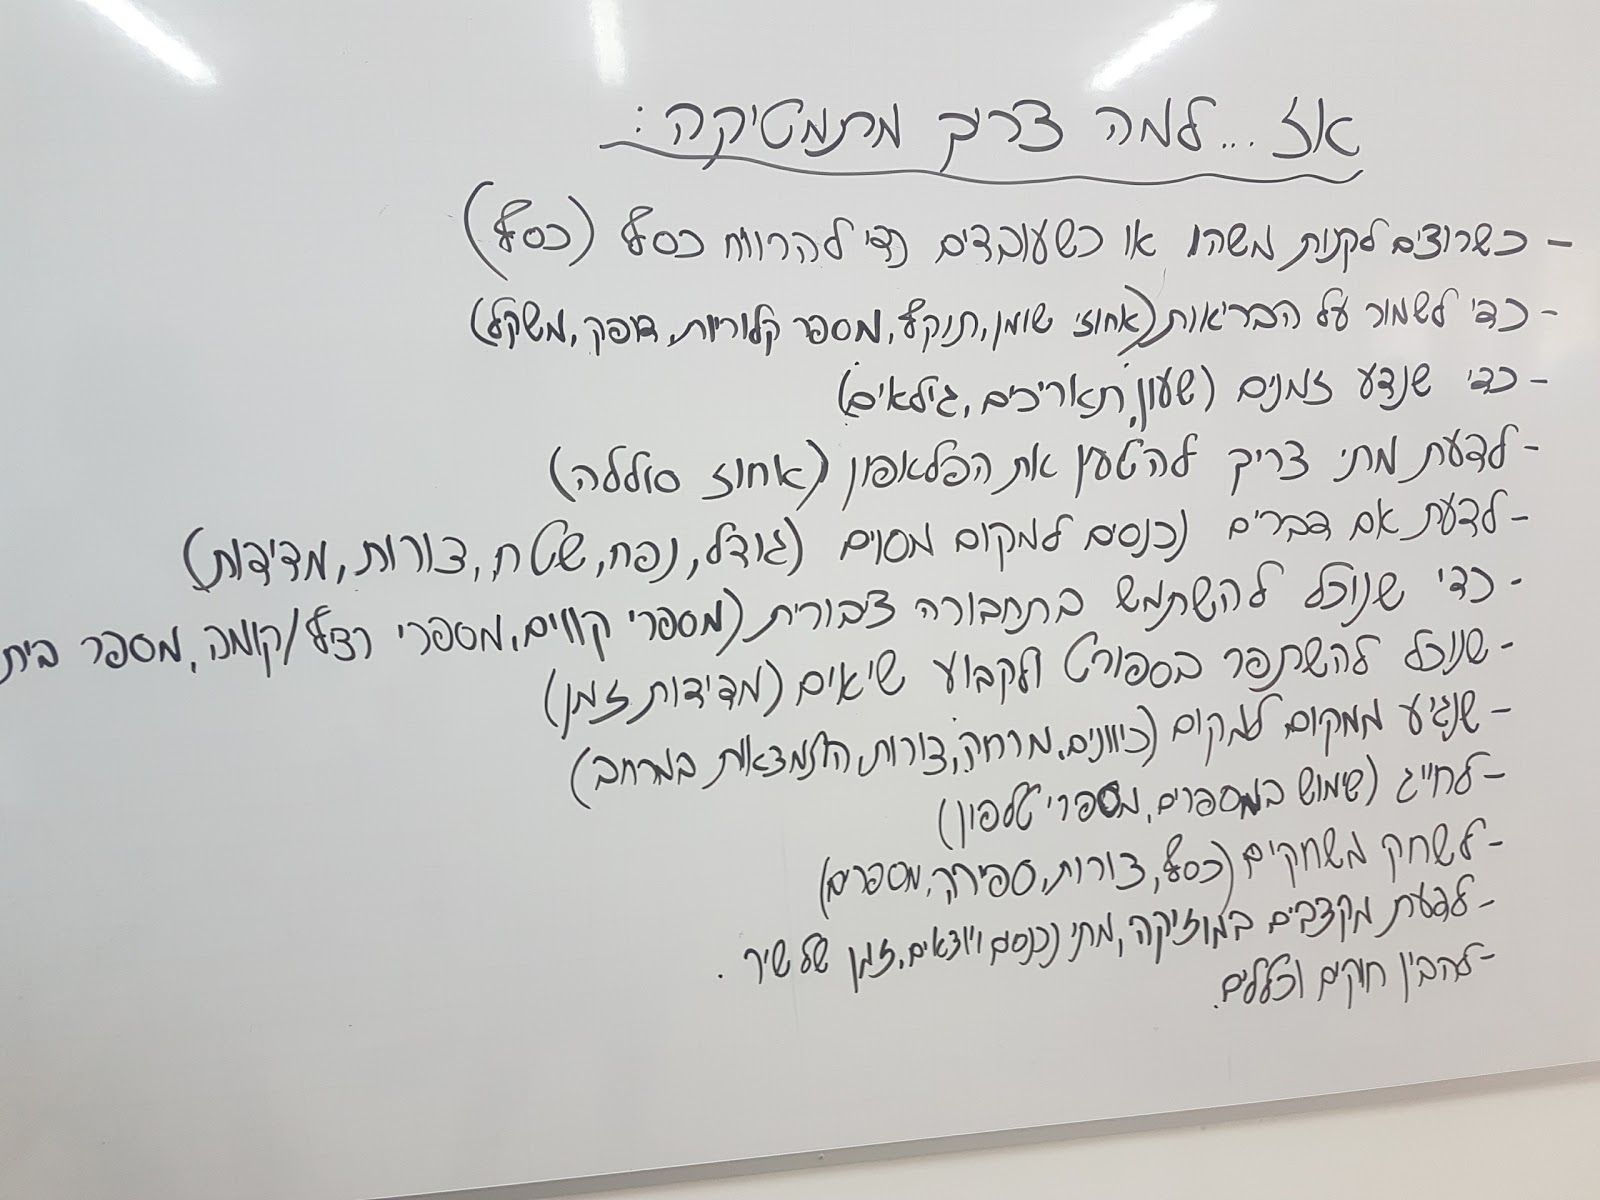 אז... למה צריך מתמטיקה:
- כשרוצים לקנות משהו או כשעובדים כדי להרוויח כסף (כסף)
- כדי לשמור על הבריאות (אחוזי שומן, תוקף, מספר קלוריות, דופק, משקל)
- כדי שנדע זמנים (שעון, תאריכים, גילאים)
- לדעת מתי צריך להטעין את הפלאפון (אחוז סוללה)
- לדעת אם דברים נכנסים למקום מסוים (גודל, נפח, שטח, צורות, מדידות)
- כדי שנוכל להשתמש בתחבורה ציבורית (מספרי קווים, מספרי רציף/קומה, מספר בית
- שנוכל להשתפר בספורט ולקבוע שיאים (מדידות זמן)
- שנגיע ממקום למקום (כיוונים, מרחק, צורות, התמצאות במרחב)
- לחייג (שימוש במספרים, מספרי טלפון)
- לשחק משחקים (כסף, צורות, ספירה, מספרים)
- לדעת מקצבים במוזיקה, מתי נכנסים ויוצאים, זמן של שיר.
- להבין חוקים וכללים.